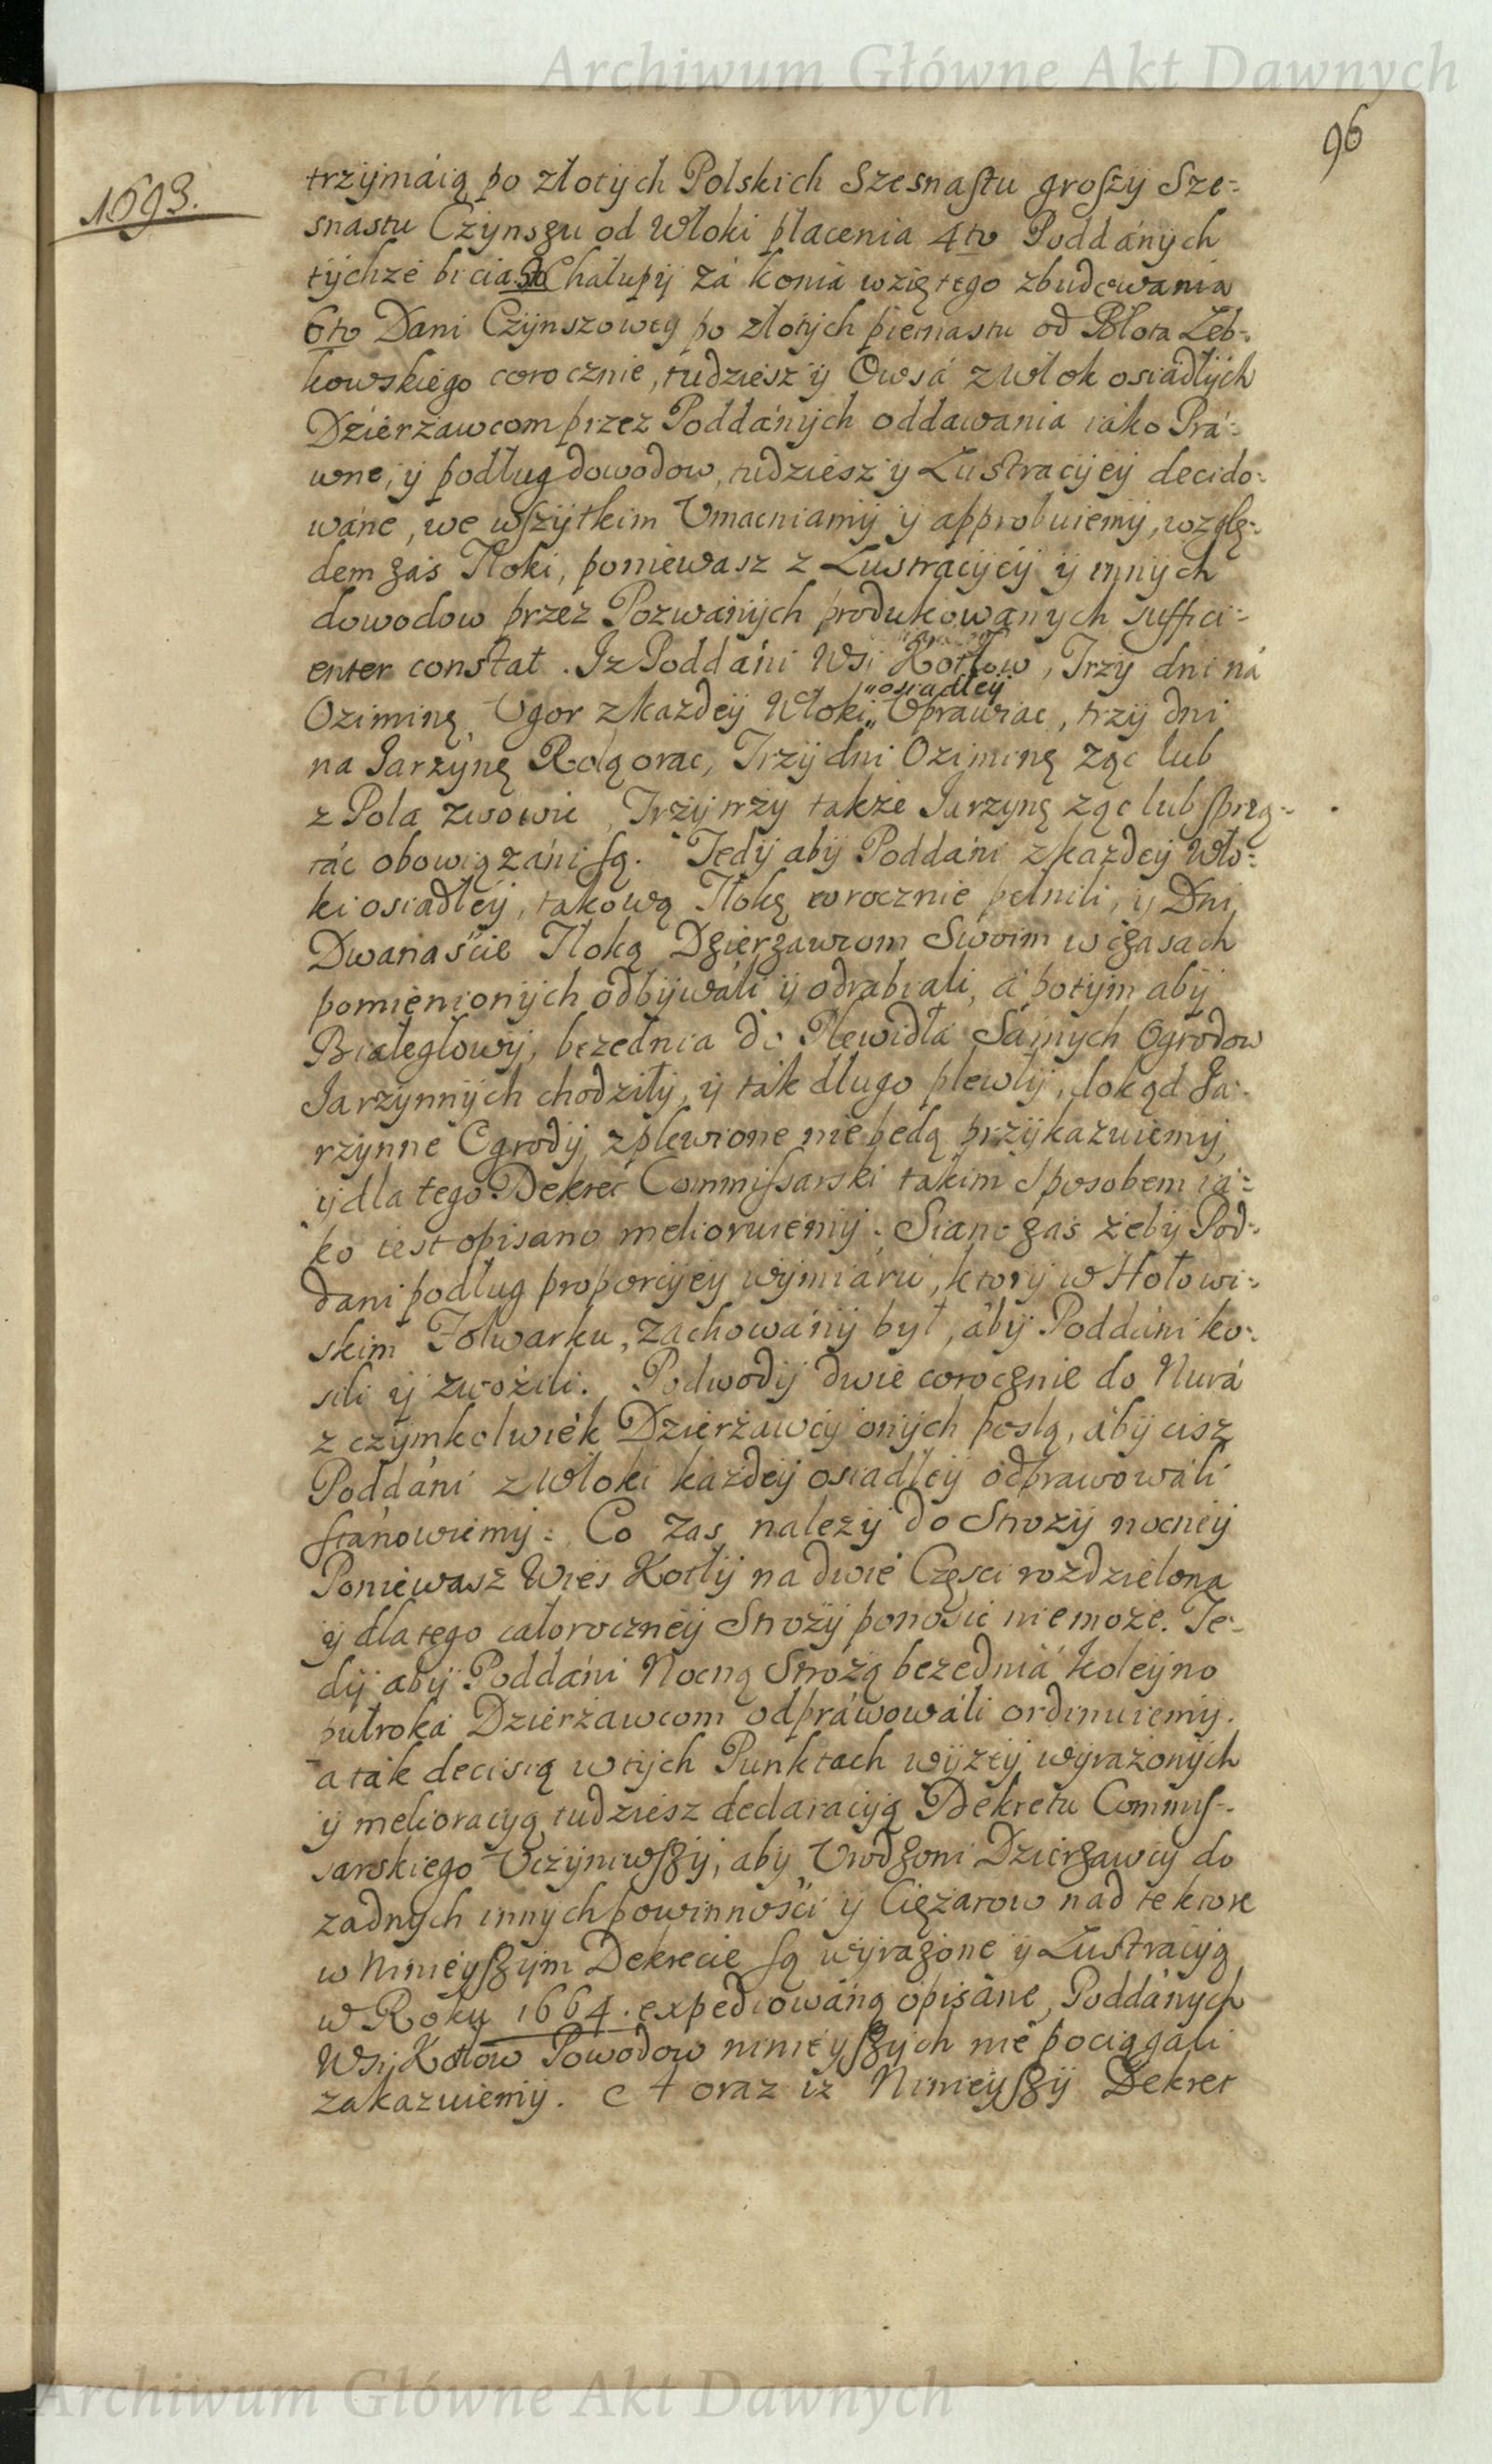 Archiwum Główne Akt Dawnych
96
1693.
trzymáią po złotych Polskich Szesnastu groszy Sze=
snastu Czynszu od Włoki płacenia 4to Poddánych
tychże bicia 5to Chałupy zá konia wziętego zbudowania
6to Dani Czynszowey po złotych piętnastu od Błota Zeb=
kowskiego corocznie, tudziesz y Owsá z Włok osiadłych
Dzierzawcom przez Poddánych oddawania iáko Prá=
wne, y podług dowodow, tudziesz y Lustracyey decido=
wáne, we wszytkim Vmacniamy y approbuiemy, wzglę=
dem zaś Tłoki, poniewasz z Lustracyey y innych
dowodow przez Pozwánych produkowanych suffici=
enter constat. Iz Poddáni Wsi Kotłow, Trzy dni ná
Oziminę Vgor z każdey Włoki osiadłey Vprawiac, trzy dni
na Iarzynę Rolą orac, Trzy dni Oziminę ząc lub
z Pola zwowic, Trzy trzy także Iarzynę ząc lub sprzą=
tác obowiązáni są. Tedy aby Poddáni z każdey Wło=
ki osiadłey, takową Tłokę corocznie pełnili, y Dni
Dwanaście Tłoką Dzierzawcom Swoim w czasach
pomienionych odbywáli y odrabiali, á potym aby
Białegłowy, bezednia do Plewidła Sámych Ogrodow
Iarzynnych chodziły, y ták długo plewły, dokąd Ia=
rzynne Ogrody zplewione nie będą przykazuiemy,
y dla tego Dekret Commissarski takim sposobem iá=
ko iest opisano meliorwiemy. Siano zaś żeby Pod=
dani podług proporcyey wymiáru, ktory w Hołowi=
skim Folwarku, zachowány był, áby Poddáni ko=
sili y zwozili. Podwody dwie corocznie do Nurá
z czymkolwiek Dzierżawcy onych poslą, áby cisz
Poddáni z Włoki każdey osiadłey odprawowáli
stánowiemy: Co zas należy do Strozy nocney
Poniewasz Wies Kotły na dwie Części rozdzielona
y dla tego całoroczney Strozy ponosić nie moze. Te=
dy aby Poddáni Nocną Strożą bezedniá koleyno
pułroká Dzierżawcom odpráwowáli ordinuiemy.
a ták decisią w tych Punktach wyzey wyrażonych
y melioracyą tudziesz declaracyą Dekretu Commis=
sarskiego Vczyniwszy, aby Vrodzoni Dzierzawcy do
żadnych innych powinności y Ciężarow nad te ktore
w Ninieyszym Dekrecie są wyrazone y Lustracyą
w Roku 1664. expediowáną opisáne, Poddánych
Wsi Kotłow Powodow ninieyszych nie pociągali
zakazuiemy. A oraz iz Ninieyszy Dekret
Archiwum Główne Akt Dawnych